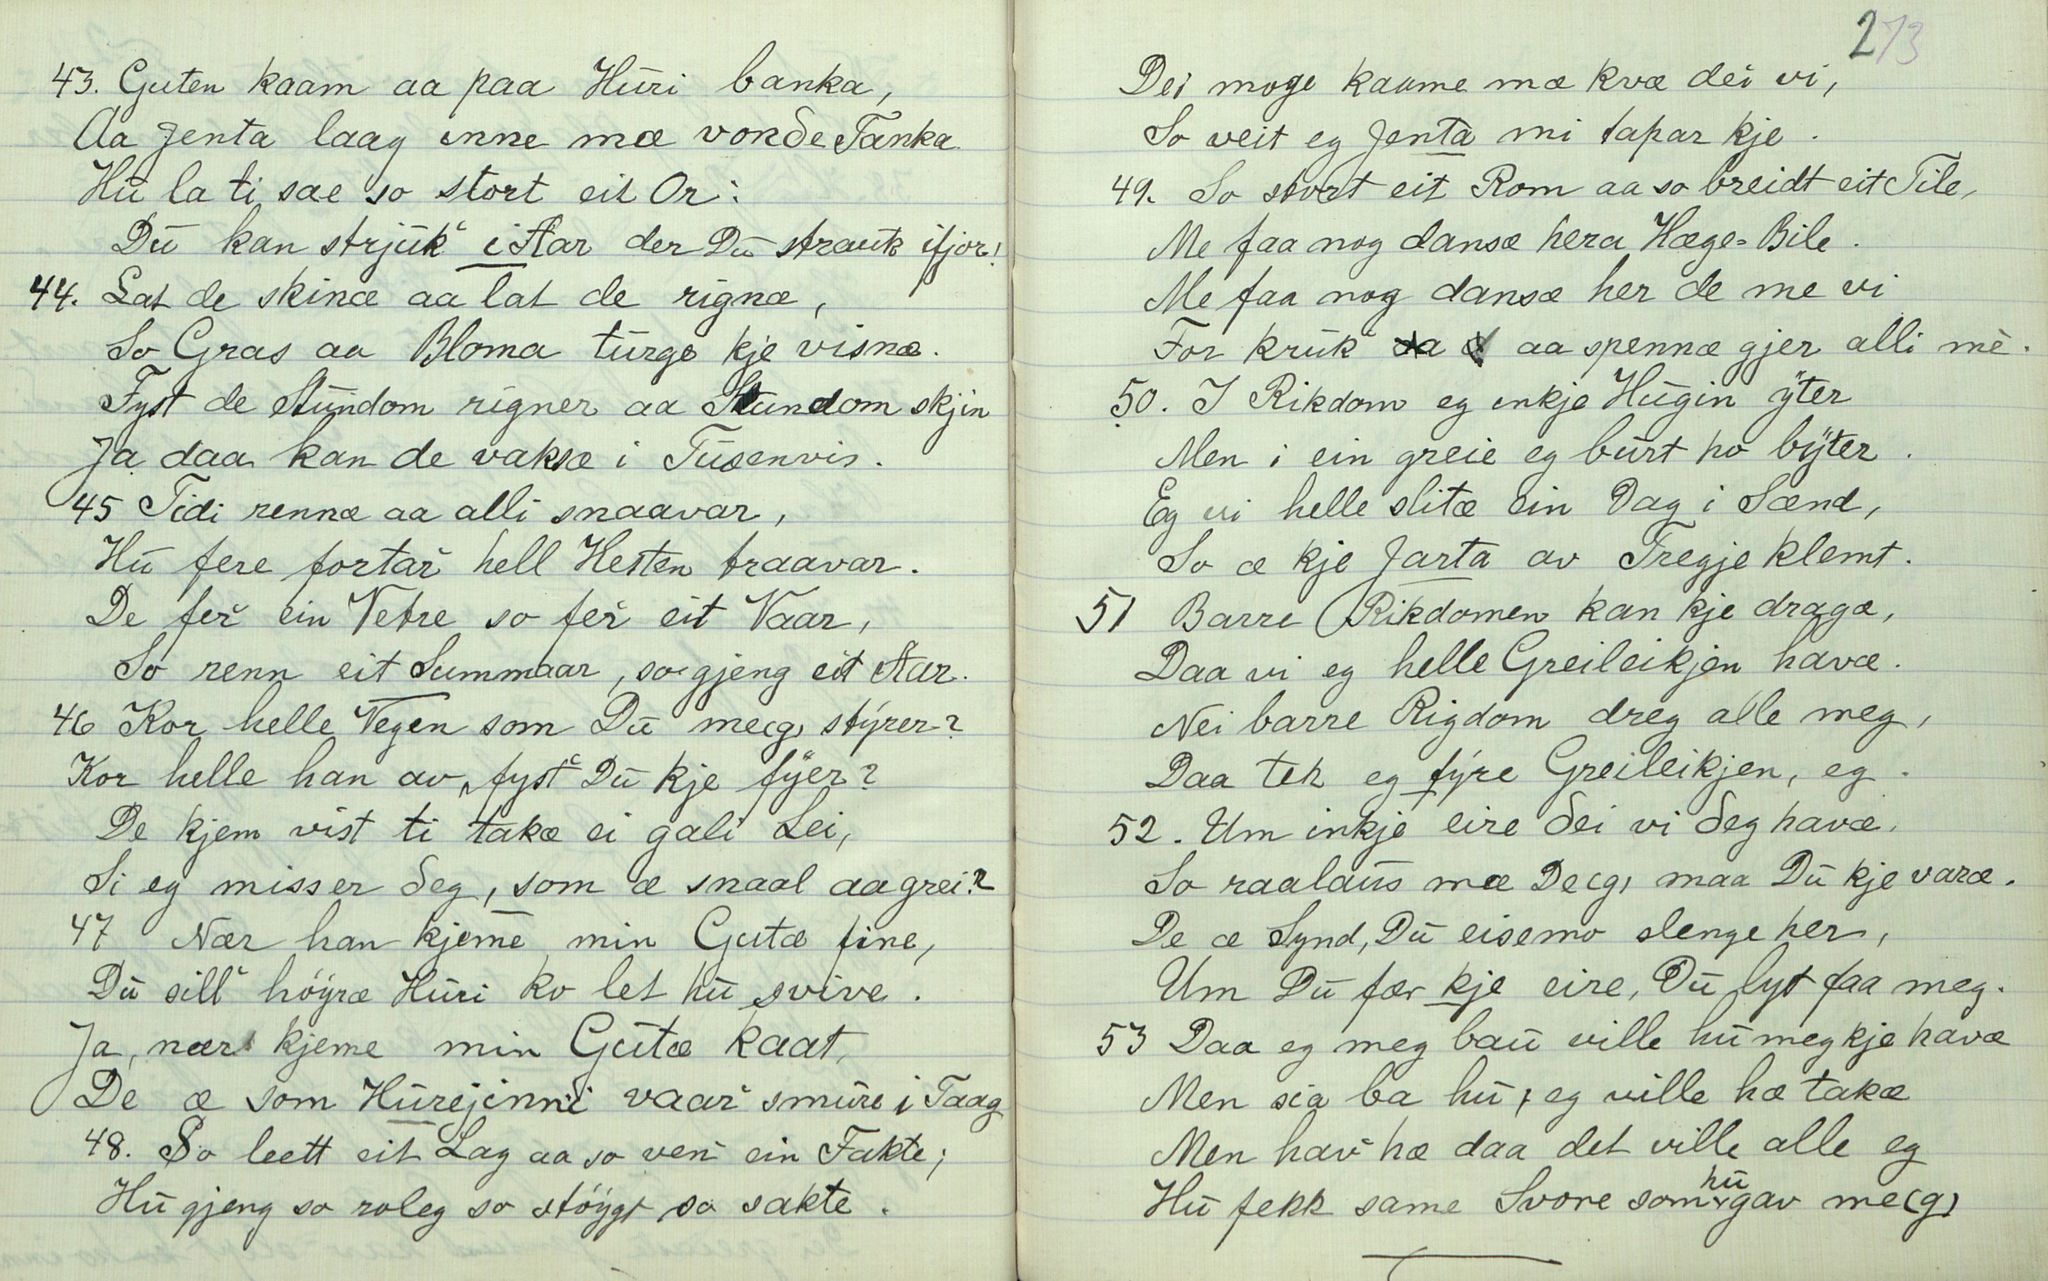 43. Guten kaam aa paa Huri banka,
Aa Jenta laag inne mæ vonde Tanka
Hu la ti sæ so stort eit Or:
Du kan strjuk' i Aar der Du strauk ifjor!
44. Lat de skinæ aa lat de rignæ,
So Gras aa Bloma turge kje visnæ.
Fyst de Stundom rigner aa Stundom skjin
Ja daa kan de vaksæ i Tusenvis.
45 Tidi rennæ aa alli snaavar,
Hu fere fortar hell Hesten traavar.
De fer ein Vetre so fer eit Vaar,
So renn eit Summaar, so gjeng eit Aar.
46 Kor helle Vegen som Du me(g) styrer?
Kor helle han av, fyst Du kje fyer?
De kjem vist ti takæ ei gali Lei,
Si eg misser deg, som æ snaal aa grei?
47 Nær han kjeme min Gutæ fine,
Du sill' höyræ Huri ko let hu svive.
Ja, nær kjeme min Gutæ kaat,
De æ som Hurejinni vaar smure i Taag
48. So leett eit Lag aa so ven ein Fakte;
Hu gjeng so roleg so stöygt so sakte.
273
Dei moge kaame mæ kvæ dei vi,
So veit eg Jenta mi tapar kje.
49. So stort eit Rom aa so breidt eit Tile,
Me faa nog dansæ hera Hæge-Bile.
Me faa nog dansæ her de me vi
For kruk' aa spennæ gjer alli me.
50. I Rikdom eg inkje Hugin yter
Men i ein greie eg burt ho byter.
Eg vi helle slitæ ein Dag i Sænd,
So æ kje Jarta av Tregje klemt.
51 Barre Rikdomen kan kje dragæ,
Daa vi eg helle Greileikjen havæ.
Nei barre Rigdom dreg alle meg,
Daa tek eg fyre Greileikjen, eg.
52. Um inkje eire dei vi deg havæ.
So raalaus mæ De(g) maa Du kje varæ.
De æ Synd, Du eisemo slenge her,
Um Du fær kje eire, Du lyt faa meg.
53 Daa eg meg bau ville hu meg kje havæ
Men sia ba hu, eg ville hæ takæ
Men hav hæ daa det ville alle eg
Hu fekk same Svore som hu gav me(g)